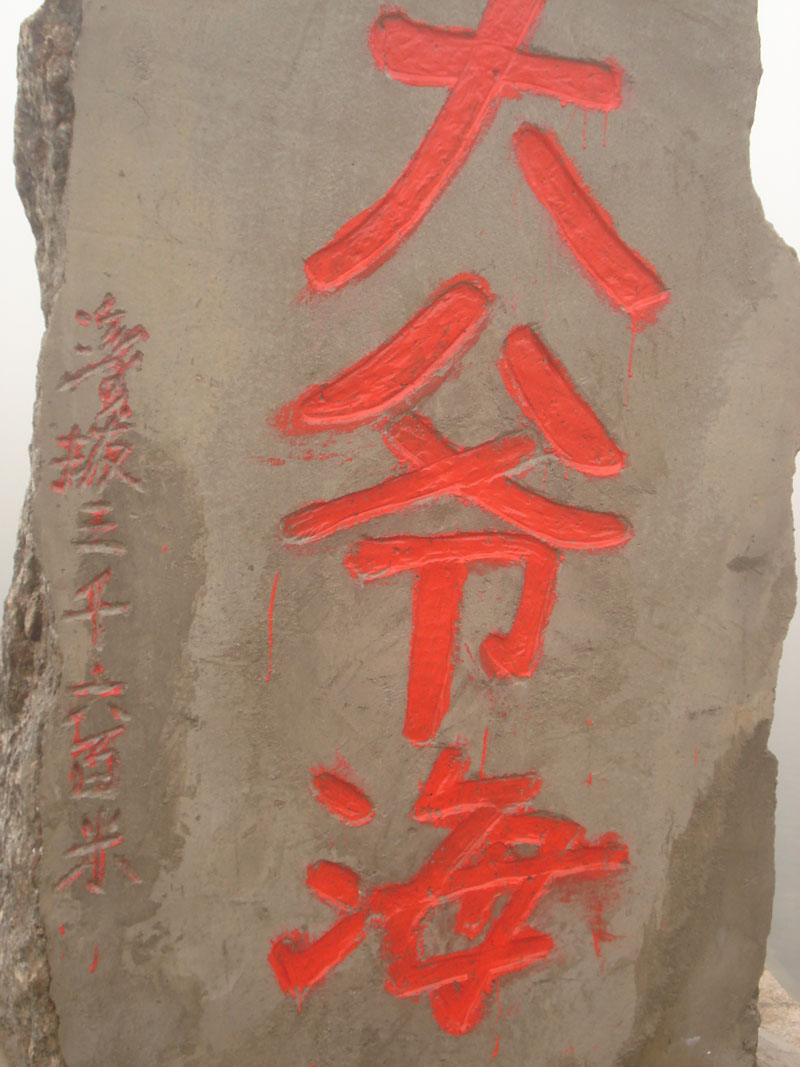 大爷海
海拔三千六百米